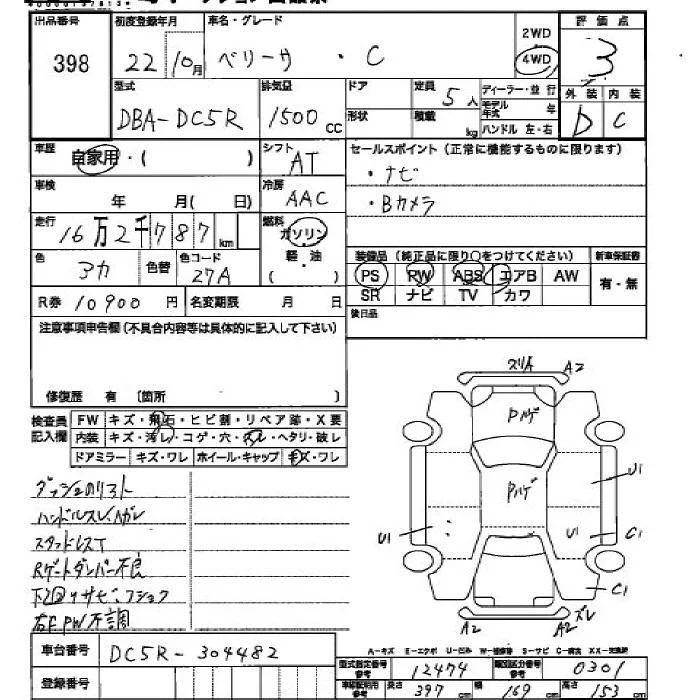 出品番号 398
初度登録年月 22 10月
車名・グレード ベリーサ ・ C
2WD
4WD
評価点 3
外装 D 内装 C
型式 DBA-DC5R
排気量 1500 cc
ドア
形状
定員 5人
積載 kg
ディーラー・並行
モデル年式 年
ハンドル 左・右
車歴 自家用・( )
シフト AT
セールスポイント(正常に機能するものに限ります)
・ナビ
・Bカメラ
車検 年 月( 日)
冷房 AAC
走行 16万2千787 km
燃料 ガソリン
軽・油
( )
色 アカ 色替
色コード 27A
装備品(純正品に限り○をつけてください)
新車保証書
PS RW ABS エアB AW
有・無
SR ナビ TV カワ
R券 10900円 名変期限 月 日
後日品
注意事項申告欄(不具合内容等は具体的に記入して下さい)
修復歴 有 〔箇所 〕
検査員記入欄
FW キズ・飛石・ヒビ割・リペア跡・X要
内装 キズ・汚レ・コゲ・穴・スレ・ヘタリ・破レ
ドアミラー キズ・ワレ ホイール・キャップ キズ・ワレ
ダッシュのリスト
ハンドルスレ、ハガレ
スタッドレスT
Rゲートダンパー不良
下回りサビ・フショク
右F PW不調
スリA A2
Pハゲ
Pハゲ
U1
U1
U1 C1
C1
A2 A2 ズレ
A-キズ E-エクボ U-凹み W-補修跡 S-サビ C-腐食 XX-交換歴
車台番号 DC5R-304482
登録番号
型式指定番号 参考 12474
類別区分番号 参考 0301
車検証記載 参考 長さ 397 cm 幅 169 cm 高さ 153 cm